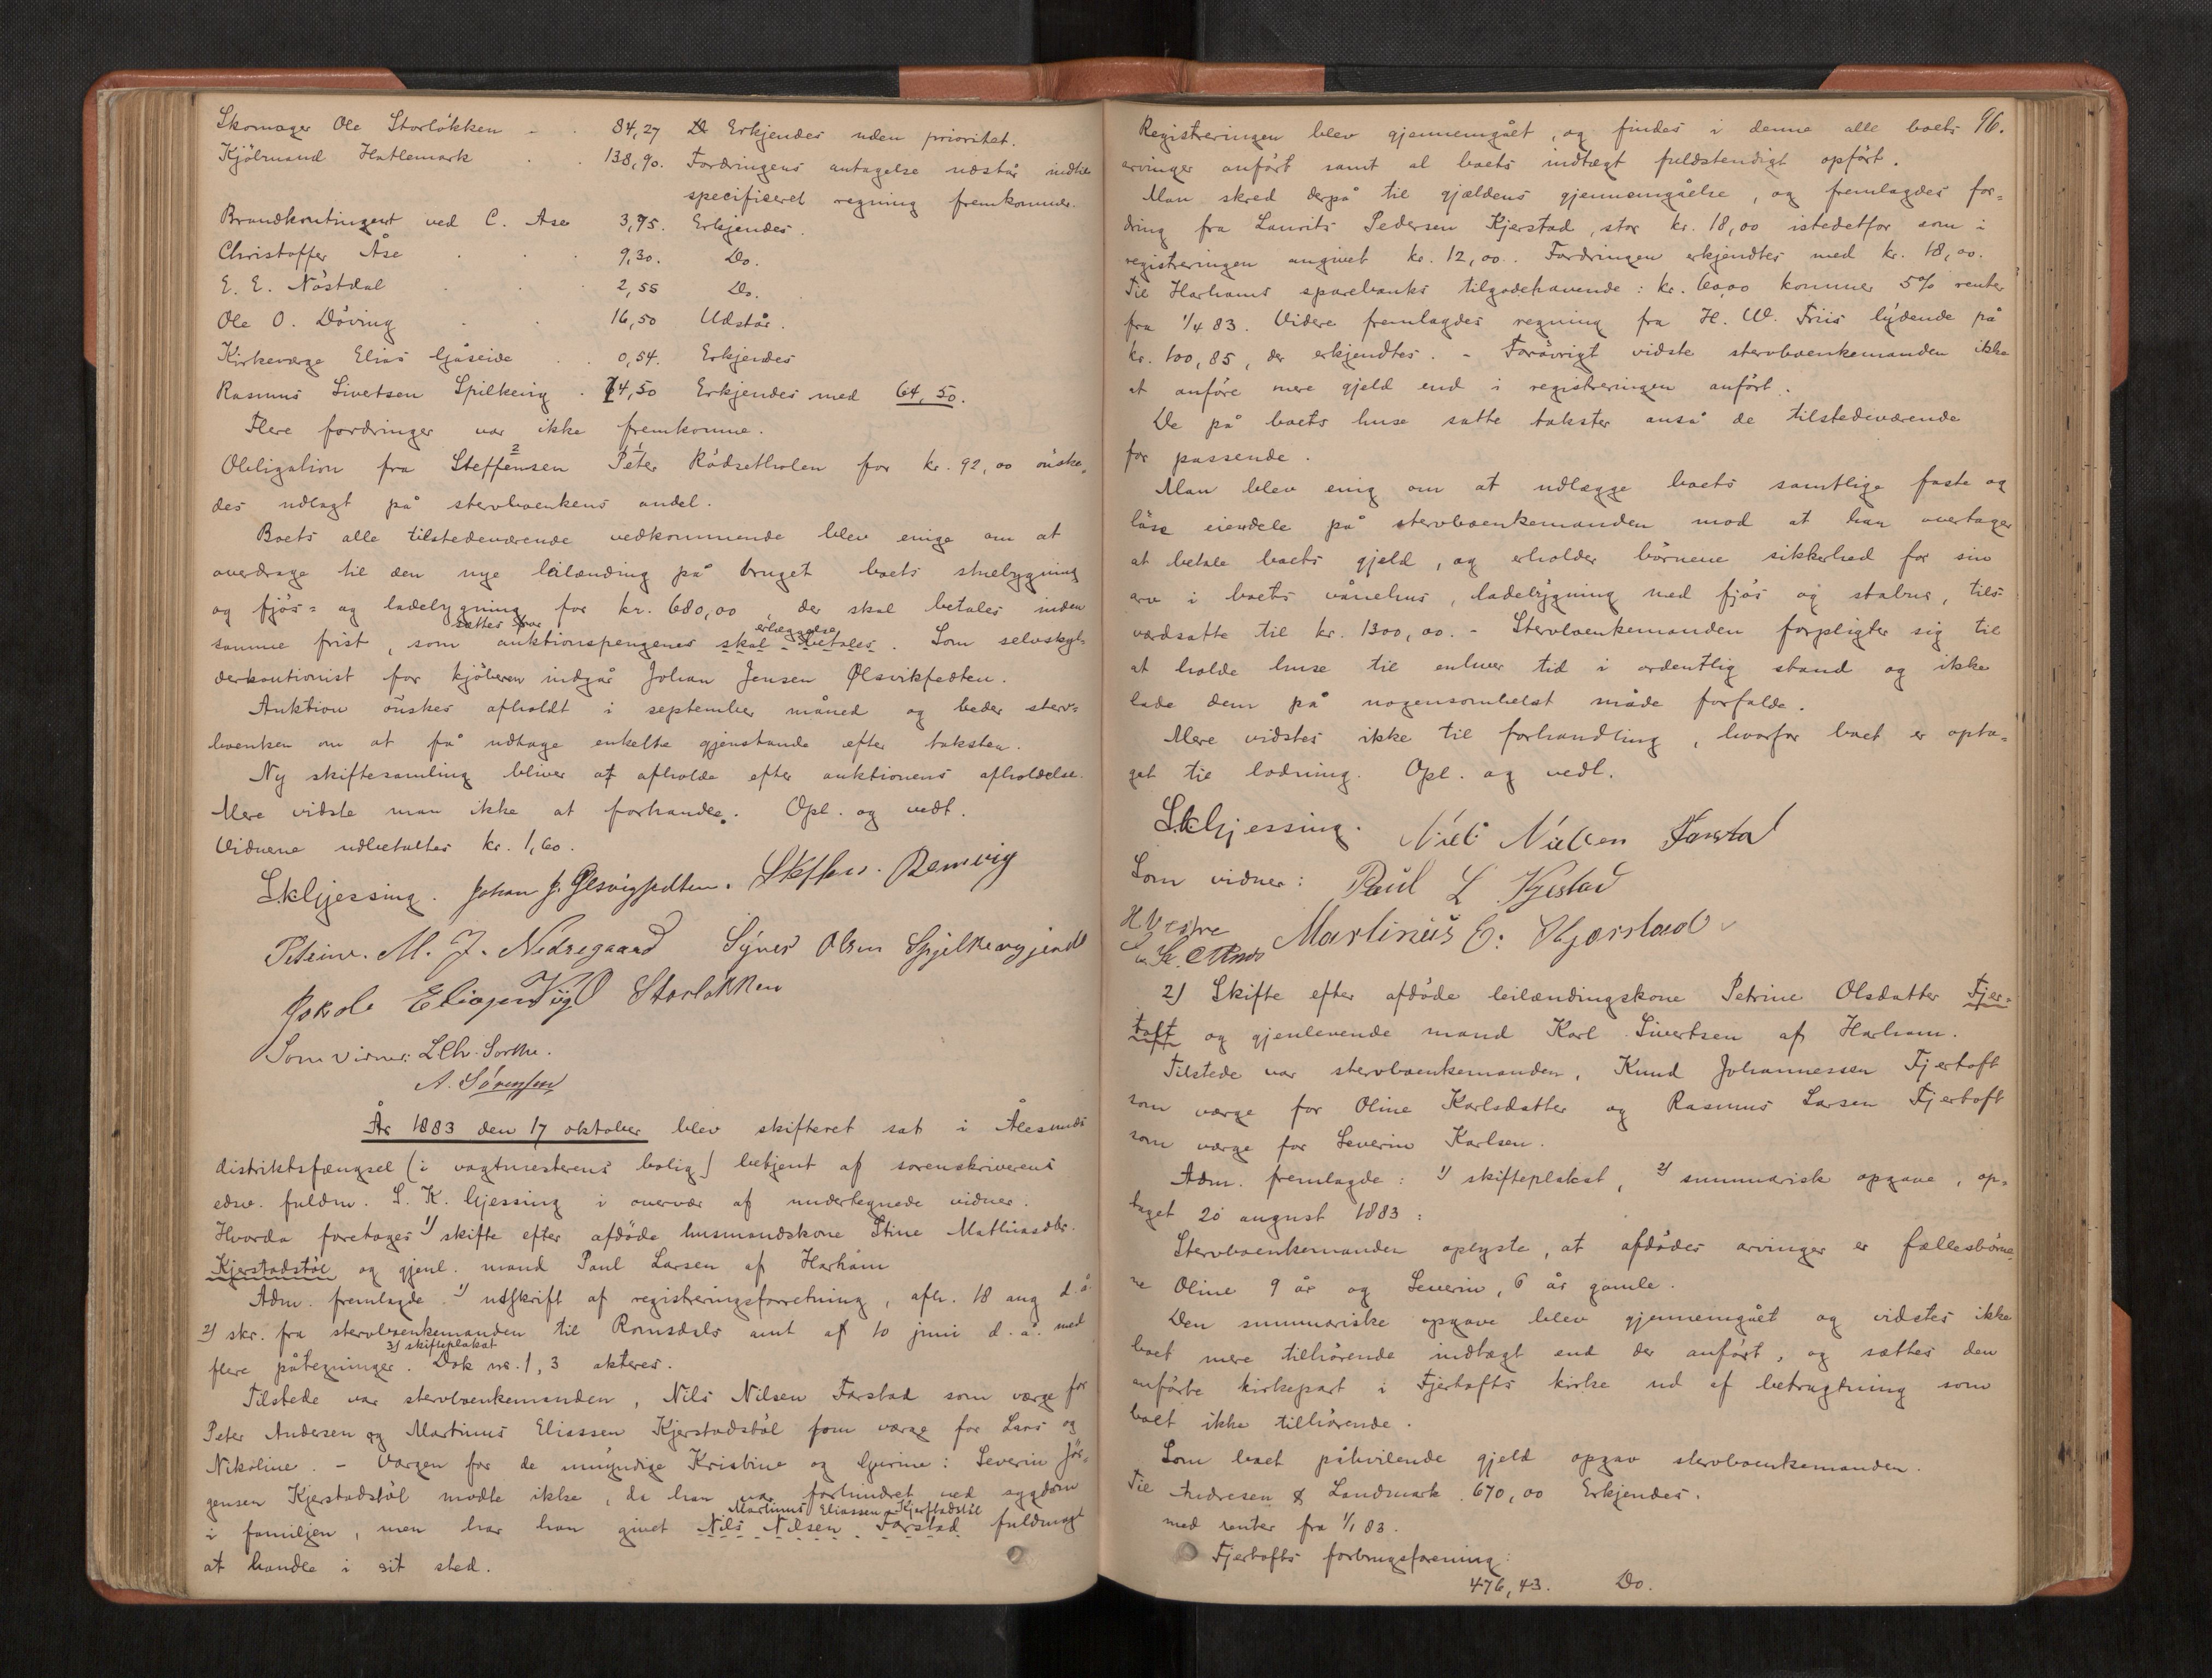 Skomager Ole Storløkken - . 84,27 Do Erkjendes uden prioritet.
Kjöbmand Hatlemark . . 138,90. Fordringens antagelse udstår indtil
specificeret regning fremkommer.
Brandkontingent ved C. Ase 3,75. Erkjendes.
Christoffer Åse . . . 9,30. Do.
E. E. Nöstdal . . 2,55 Do.
Ole O. Döving . . 16,50 Udstår.
Kirkeværge Elias Gåseide . . 0,54. Erkjendes
Rasmus Sivertsen Spilkevig . 74,50 Erkjendes med 64,50.
Flere fordringer var ikke fremkomne.
Obligation fra Steffensen Peter Rödsetholen for kr. 92,00 önske,
des udlagt på stervboenkens andel.
Boets alle tilstedeværende vedkommende blev enige om at
overdrage til den nye leilænding på bruget boets stuebygning
og fjös= og ladebygning for kr. 680,00, der skal betales inden
samme frist, som sættes for auktionspengenes skal betales erlæggelse. Som selvskyl=
derkautionist for kjöberen indgår Johan Jensen Ølsvikfedten.
Auktion önskes afholdt i september måned og beder sterv=
boenken om at få udtage enkelte gjenstande efter taksten.
Ny skiftesamling bliver at afholde efter auktionens afholdelse.
Mere vidste man ikke at forhandle. Opl. og vedt.
Vidnerne udbetaltes kr. 1,60.
S.K. Gjessing. Johan J. Ølsvigfedten. Steffen. Remvig
Petrine. M. J. Nedregaard Syver Olsen Spjelkevigjend
Jakob Eliasen Viig O Storløkken
Som vidner: L Chr. Sorthe.
A. Sörensen
År 1883 den 17 oktober blev skifteret sat i Ålesunds
distriktsfængsel (i vagtmesterens bolig) betjent af sorenskriverens
edsv. fuldm. S. K. Gjessing i overvær af undertegnede vidner.
Hvorda foretages 1) skifte efter afdöde husmandskone Stine Mathiasdtr.
Kjerstadstöl og gjenl. mand Paul Larsen af Harham
Adm. fremlagde 1) udskrift af registreringsforretning, afh. 18 aug d.å.
2) skr. fra stervboenkemanden til Romsdals amt af 10 juni d.å. med
flere påtegninger. 3) skifteplakat Dok nr. 1, 3 akteres.
Tilstede var stervboenkemanden, Nils Nilsen Farstad som værge for
Peter Andersen og Martinus Eliassen Kjerstadstöl som værge for Lars og
Nikoline. - Værgen for de umyndige Kristine og Gurine: Severin Jör=
gensen Kjerstadstöl mödte ikke, da han var forhindret ved sygdom
i familjen, men har han givet Nils Nilsen Farstad Martinus Eliassen Kjerstadstöl fuldmagt
at handle i sit sted.
96.
Registreringen blev gjennemgået, og findes i denne alle boets
arvinger anfört samt al boets indtægt fuldstendigt opfört.
Man skred derpå til gjældens gjennemgåelse, og fremlagdes for=
dring fra Laurits Pedersen Kjerstad, stor kr. 18,00 istedetfor som i
registreringen angivet kr. 12,00. Fordringen erkjendtes med kr. 18,00.
Til Harhams sparebanks tilgodehavende: kr. 60,00 kommer 5% renter
fra 1/4 83. Videre fremlagdes regning fra H. W. Friis lydende på
kr. 100,85, der erkjendtes. - Foråvrigt vidste stervboenkemanden ikke
at anföre mere gjeld end i registreringen anfört.
De på boets huse satte takster anså de tilstedeværende
for passende.
Man blev enig om at udlægge boets samtlige faste og
löse eiendele på stervboenkemanden mod at han overtager
at betale boets gjeld, og erholder börnene sikkerhed for sin
arv i boets vånehus, ladebygning med fjös og stabur, tils.
værdsatte til kr. 1300,00. - Stervboenkemanden forpligter sig til
at holde huse til enhver tid i ordentlig stand og ikke
lade dem på nogensomhelst måde forfalde.
Mere vidstes ikke til forhandling, hvorfor boet er opta=
get til lodning. Opl. og vedt.
S.K. Gjessing. Nils Nielsen Farstad
Som vidner: Paul L Kjestad
Martinus E. Kjærstad
2) Skifte efter afdöde leilændingskone Petrine Olsdatter Fjer=
toft og gjenlevende mand Karl Sivertsen af Harham.
Tilstede var stervboenkemanden, Knud Johannessen Fjertoft
som værge for Oline Karlsdatter og Rasmus Larsen Fjertoft
som værge for Severin Karlsen.
Adm. fremlagde: 1) skifteplakat, 2) summarisk opgave, op=
taget 20 august 1883:
Stervboenkemanden oplyste, at afdödes arvinger er fællesbörne
ne Oline 9 år og Severin, 6 år gamle.
Den summariske opgave blev gjennemgået og vidstes ikke
boet mere tilhörende indtægt end der anfört, og sættes den
anförte kirkepart i Fjertofts kirke ud af betragtning som
boet ikke tilhörende.
Som boet påhvilende gjeld opgav stervboenkemanden.
Til Andresen & Landmark 670,00 Erkjendes.
med renter fra 1/1 83.
Fjertofts forbrugsforening:
476,43. Do.